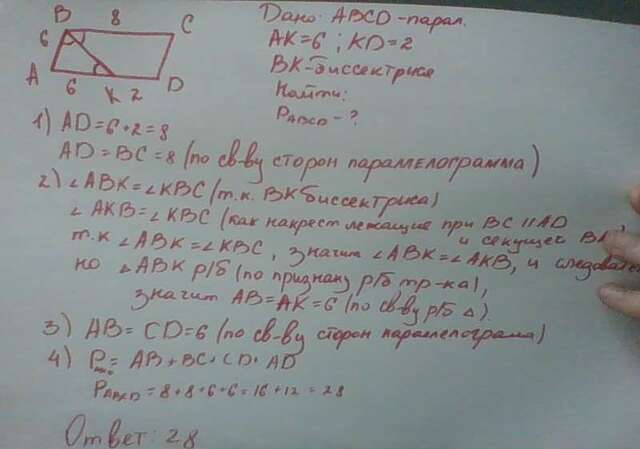 B 8 C
6
A 6 K 2 D
Дано: ABCD - парал.
AK=6 ; KD=2
BK-биссектриса
Найти:
P ABCD - ?
1) AD=6+2=8
AD=BC=8 (по св-ву сторон параллелограмма)
2) ∠ABK=∠KBC (т.к. BK биссектриса)
∠AKB=∠KBC (как накрест лежащие при BC || AD
и секущей
т.к ∠ABK=∠KBC, значит ∠ABK=∠AKB, и
но ∠ABK р/б (по признаку р/б тр-ка),
значит AB=AK=6 (по св-ву р/б Δ).
3) AB=CD=6 (по св-ву сторон параллелограма)
4) P = AB+BC+CD+AD
P ABCD = 8+8+6+6=16+12=28
Ответ: 28